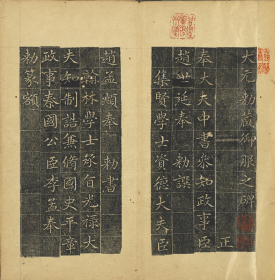 大元勑藏御服之碑
正
奉大夫中書叅知政事臣
趙世延奉 勑譔
集賢學士資德大夫臣
趙孟頫奉 勑書
翰林學士承旨光祿大
夫知制誥兼脩國史平章
政事秦國公臣李孟奉
勑篆額